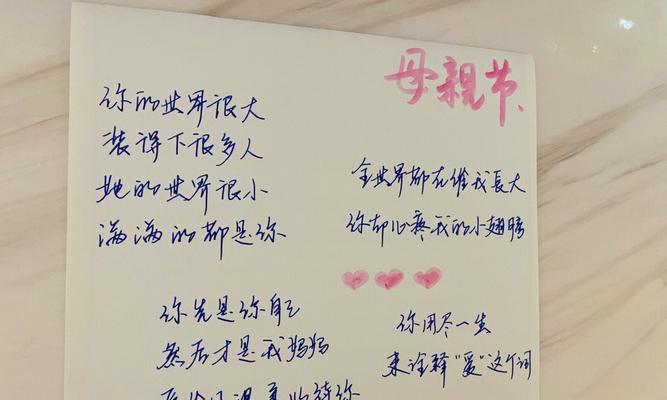 母親节
你的世界很大
装得下很多人
她的世界很小
满满的都是你
全世界都在催我長大
你却心疼我的小翅膀
你先是你自己
然后才是我妈妈
你用尽一生
来诠释“爱”这个词